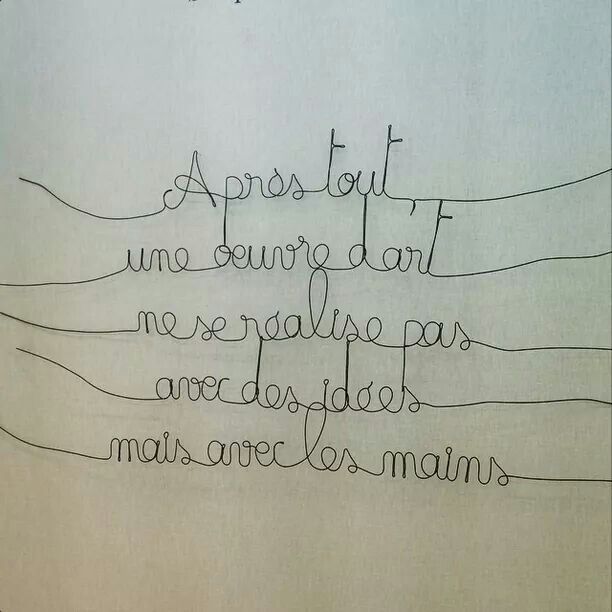 Après tout,
une oeuvre d'art
ne se réalise pas
avec des idées
mais avec les mains